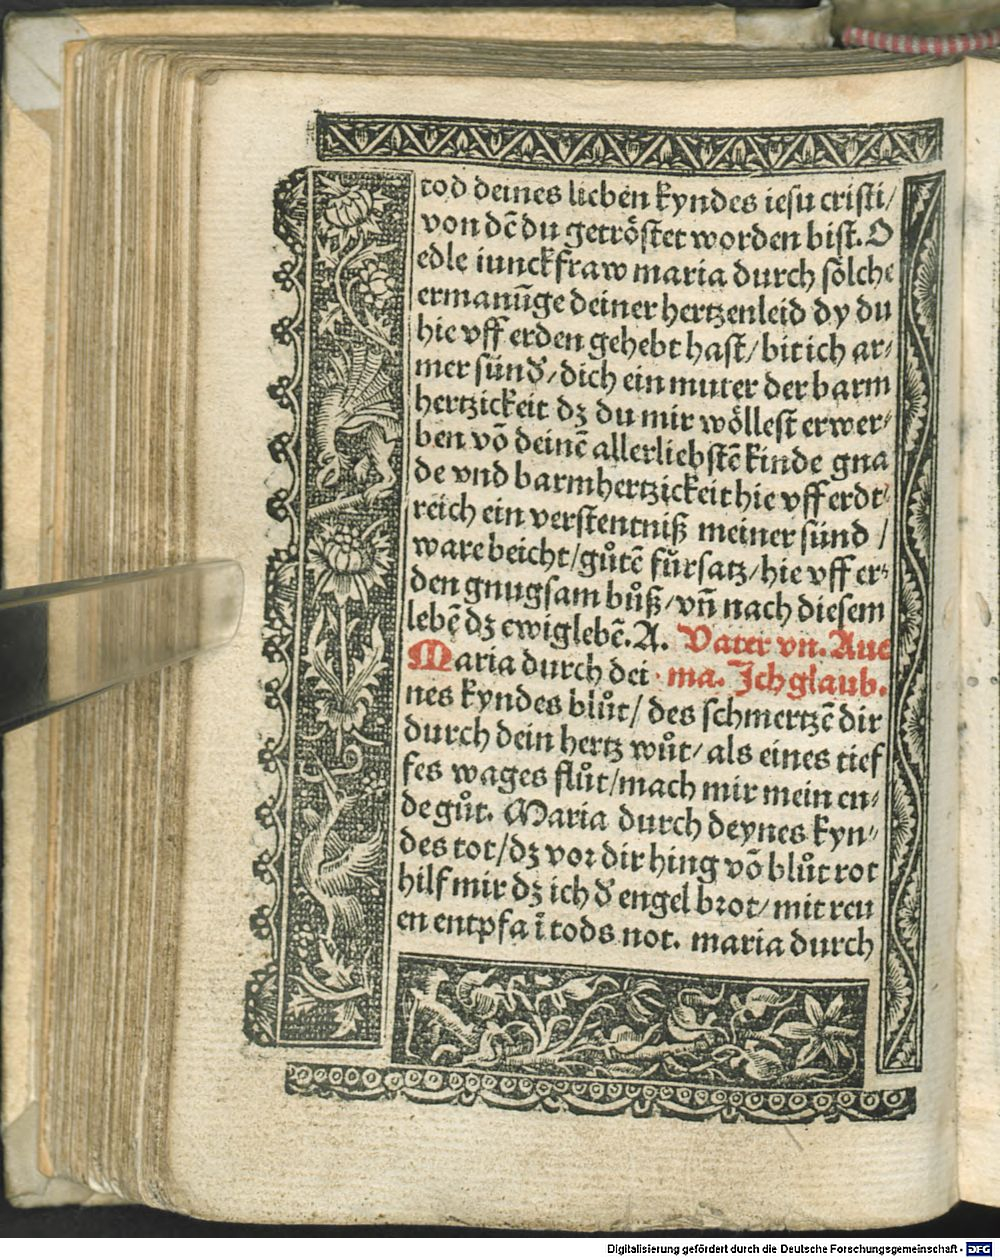 tod deines lieben kyndes iesu cristi/
von dē du getröstet worden bist. O
edle iunckfraw maria durch sölche
ermanūge deiner hertzenleid dy du
hie vff erden gehebt hast/ bit ich ar⸗
mer sünd̕/ dich ein muter der barm
hertzickeit dz du mir wöllest erwer⸗
ben vō deinē allerliebstē kinde gna
de vnd barmhertzickeit hie vff erdt⸗
reich ein verstentniß meiner sünd /
ware beicht/ gůtē fürsatz/ hie vff er⸗
den gnugsam bůß/ vn̄ nach diesem
lebē dz ewig lebē. A. Vater vn. Aue
Maria durch dei⸗ ma. Ich glaub.
nes kyndes blůt/ des schmertzē dir
durch dein hertz wůt/ als eines tief
fes wages flůt/ mach mir mein en⸗
de gůt. Maria durch deynes kyn⸗
des tot/ dz vor dir hing vō blůt rot
hilf mir dz ich d̕ engel brot/ mit reu
en entpfa ī tods not. maria durch
Digitalisierung gefördert durch die Deutsche Forschungsgemeinschaft - DFG